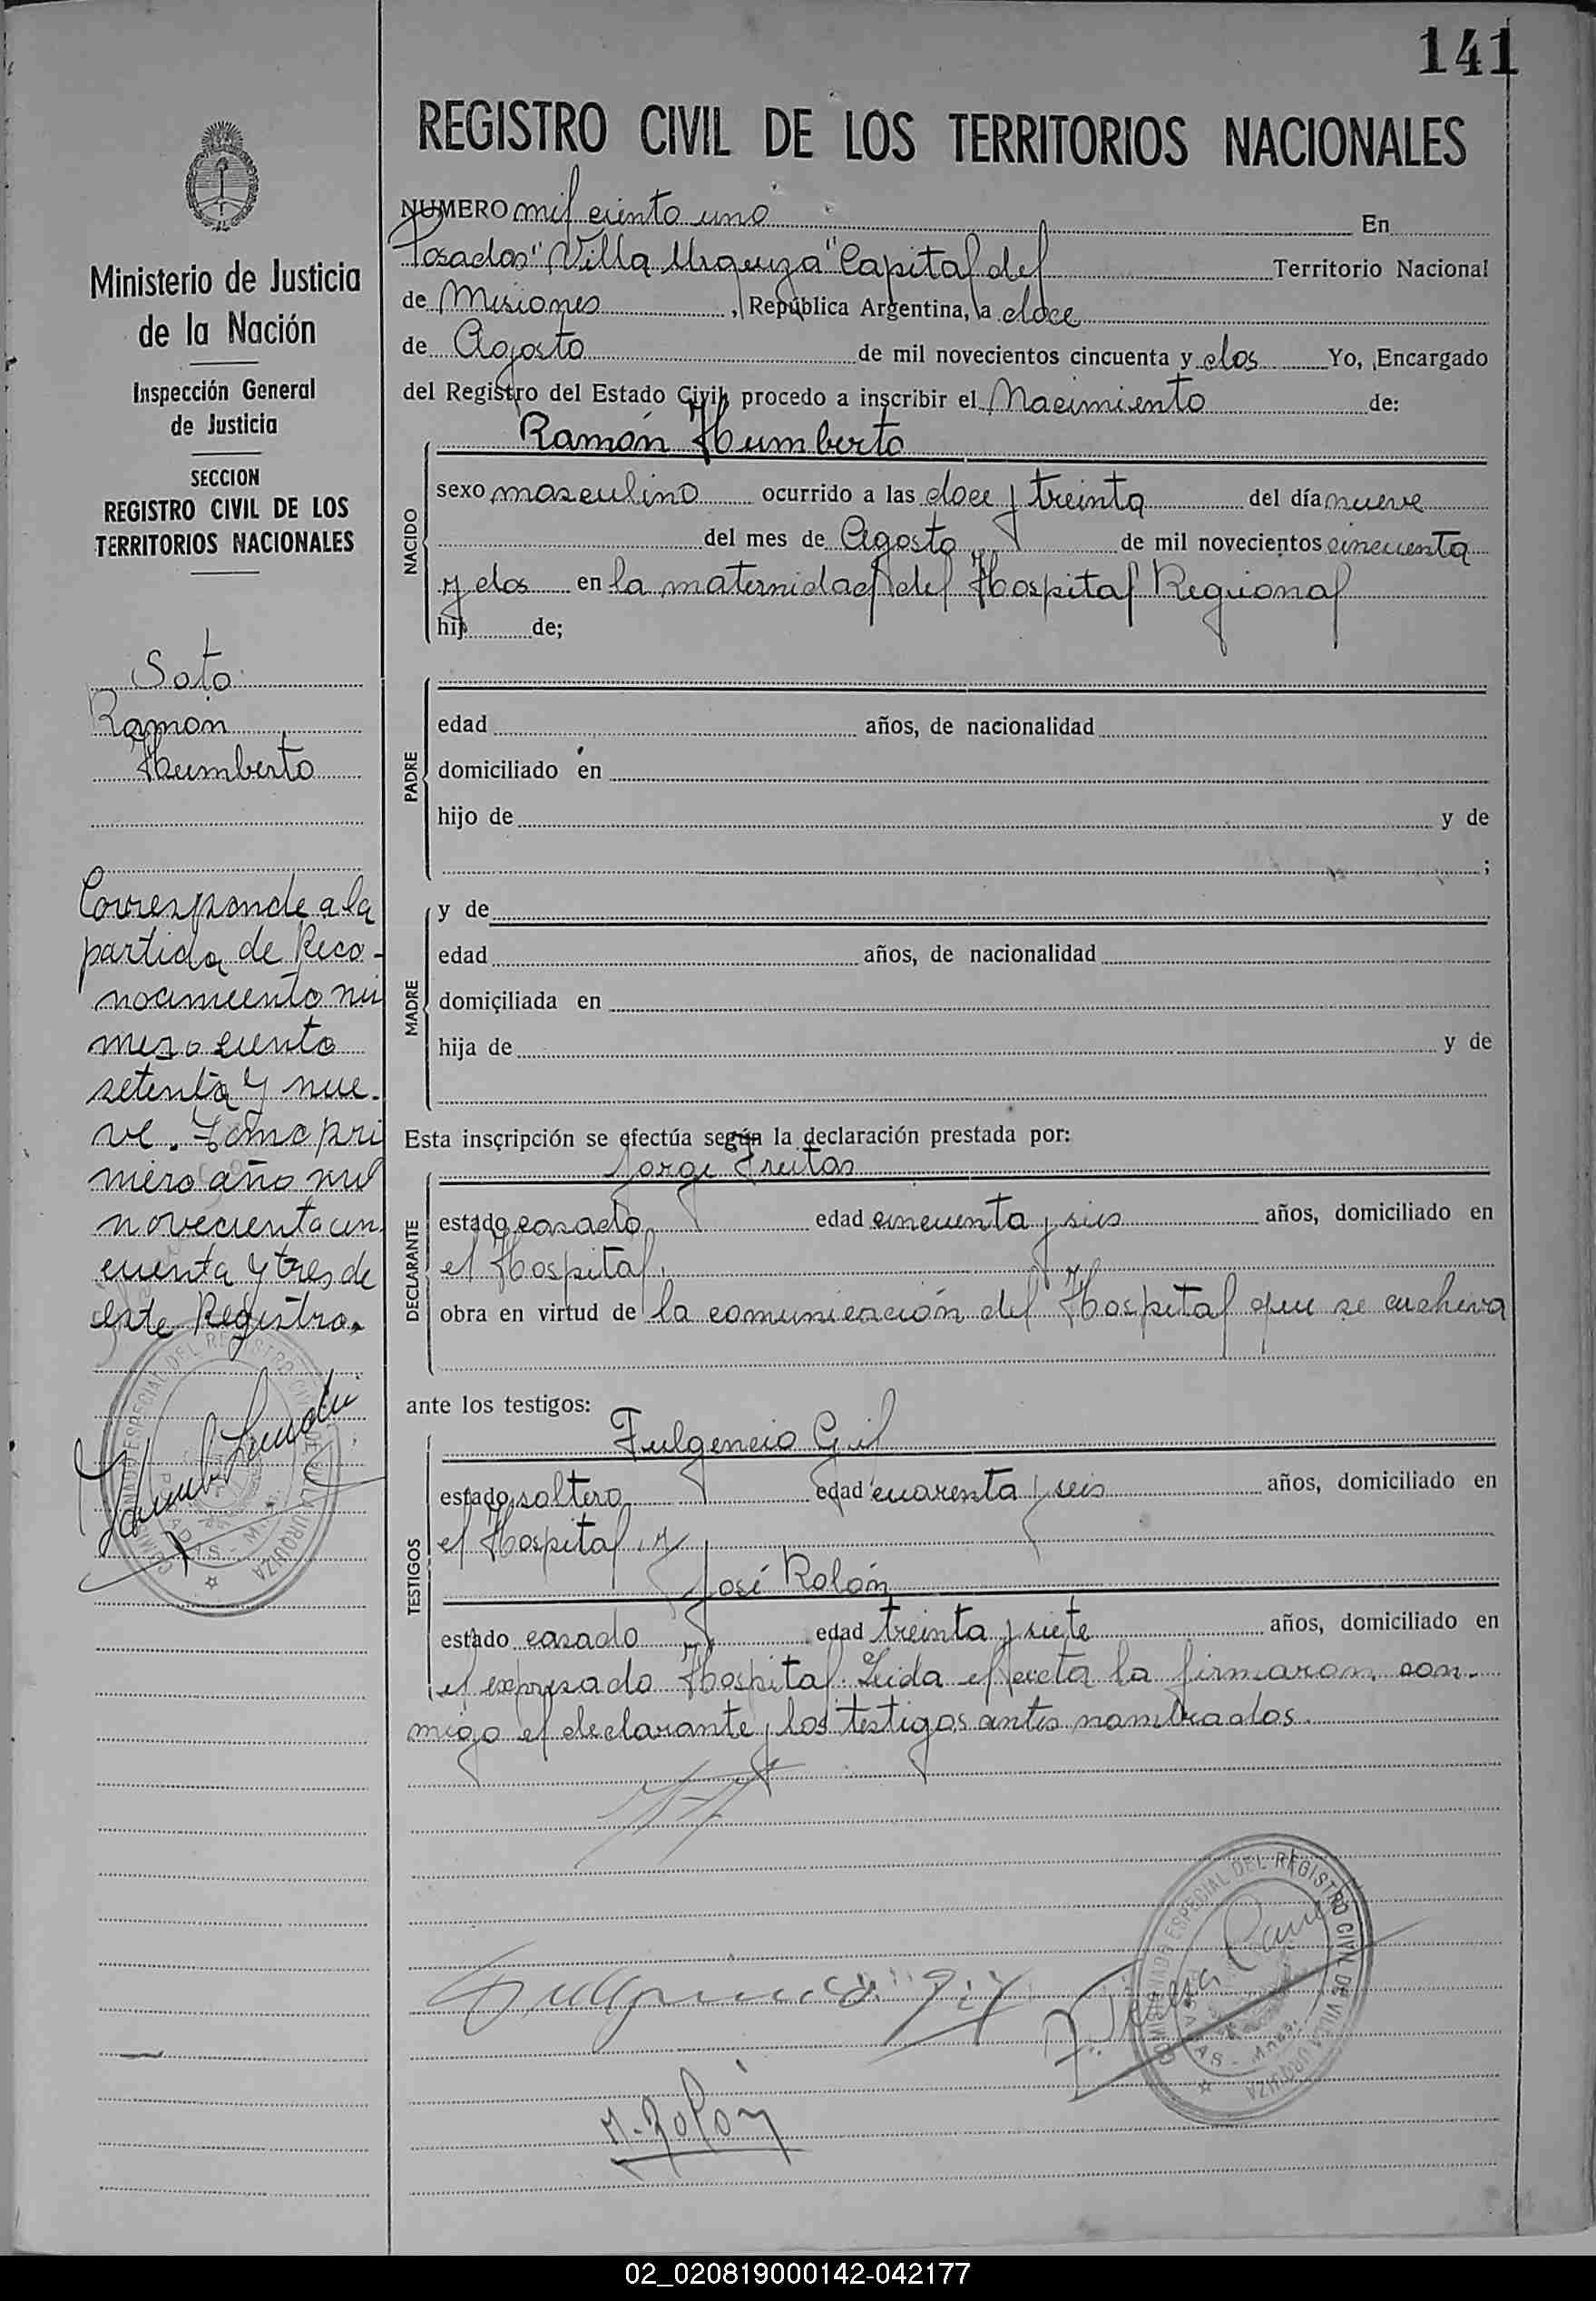 141
REGISTRO CIVIL DE LOS TERRITORIOS NACIONALES
Ministerio de Justicia
de la Nación
Inspección General
de Justicia
SECCION
REGISTRO CIVIL DE LOS
TERRITORIOS NACIONALES
Soto
Ramon
Humberto
Corresponde a la
partida de Reco-
nocimiento nú
mero ciento
setenta y nue-
ve. Tomo pri
mero año mil
novecientocin
cuenta y tres de
este Registro.
NUMERO mil ciento uno En
Posadas "Villa Urquiza" Capital del Territorio Nacional
de Misiones, República Argentina, a doce
de Agosto de mil novecientos cincuenta y dos Yo, Encargado
del Registro del Estado Civil, procedo a inscribir el Nacimiento de:
Ramón Humberto
NACIDO
sexo masculino ocurrido a las doce y treinta del día nueve
del mes de Agosto de mil novecientos cincuenta
y dos en la maternidad del Hospital Regional
hij de;
PADRE
edad años, de nacionalidad
domiciliado en
hijo de y de
;
MADRE
y de
edad años, de nacionalidad
domiciliada en
hija de y de
Esta inscripción se efectúa según la declaración prestada por:
Jorge Freitas
DECLARANTE
estado casado edad cincuenta y seis años, domiciliado en
el Hospital,
obra en virtud de la comunicación del Hospital que se archiva
ante los testigos:
Fulgencio Gil
TESTIGOS
estado soltero edad cuarenta y seis años, domiciliado en
el Hospital, y
José Rolón
estado casado edad treinta y siete años, domiciliado en
el expresado Hospital. Leida el acta la firmaron con-
migo el declarante y los testigos antes nombrados.
COMISIONADO ESPECIAL DEL REGISTRO CIVIL DE VILLA URQUIZA
POSADAS - Mnes.
Fulgencio Gil
M. Rolón
COMISIONADO ESPECIAL DEL REGISTRO CIVIL DE VILLA URQUIZA
POSADAS - Mnes.
02_020819000142-042177